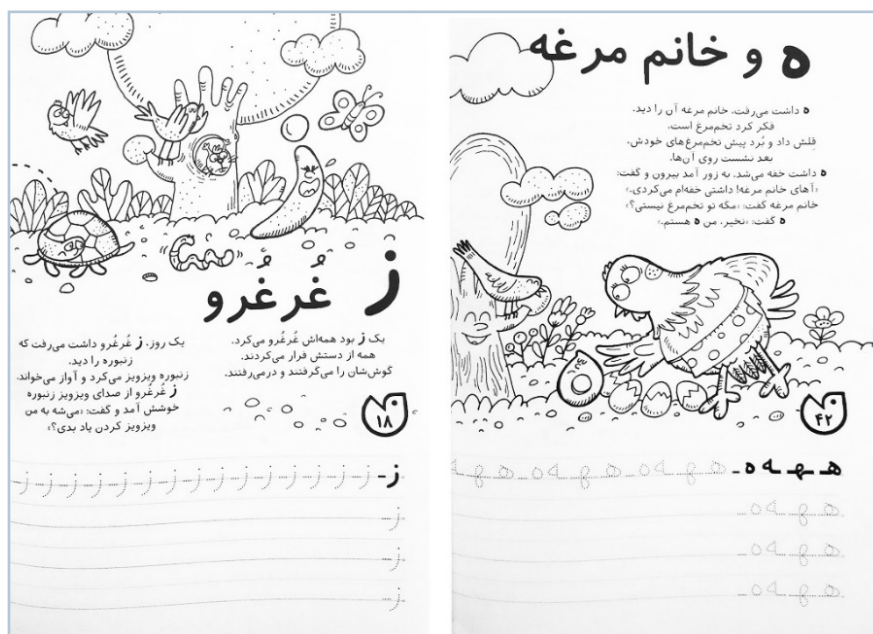 ه و خانم مرغه
ه داشت می‌رفت. خانم مرغه آن را دید.
فکر کرد تخم‌مرغ است.
قلش داد و بُرد پیش تخم‌مرغ‌های خودش،
بعد نشست روی آن‌ها.
ه داشت خفه می‌شد. به زور آمد بیرون و گفت:
«آهای خانم مرغه! داشتی خفه‌ام می‌کردی.»
خانم مرغه گفت: «مگه تو تخم‌مرغ نیستی؟»
ه گفت: «نخیر. من ه هستم.»
۴۲
هـ ـهـ ـه ه هـ ـهـ ـه ه هـ ـهـ ـه ه هـ ـهـ ـه
هـ ـهـ ـه ه
هـ ـهـ ـه ه
هـ ـهـ ـه ه
ز غُرغُرو
یک ز بود همه‌اش غُرغُرو می‌کرد.
همه از دستش فرار می‌کردند.
گوش‌شان را می‌گرفتند و درمی‌رفتند.
یک روز، ز غُرغُرو داشت می‌رفت که
زنبوره را دید.
زنبوره ویزویز می‌کرد و آواز می‌خواند.
ز غُرغُرو از صدای ویزویز زنبوره
خوشش آمد و گفت: «می‌شه به من
ویزویز کردن یاد بدی؟»
۱۸
ز ز ز ز ز ز ز ز ز ز ز ز ز ز
ز
ز
ز